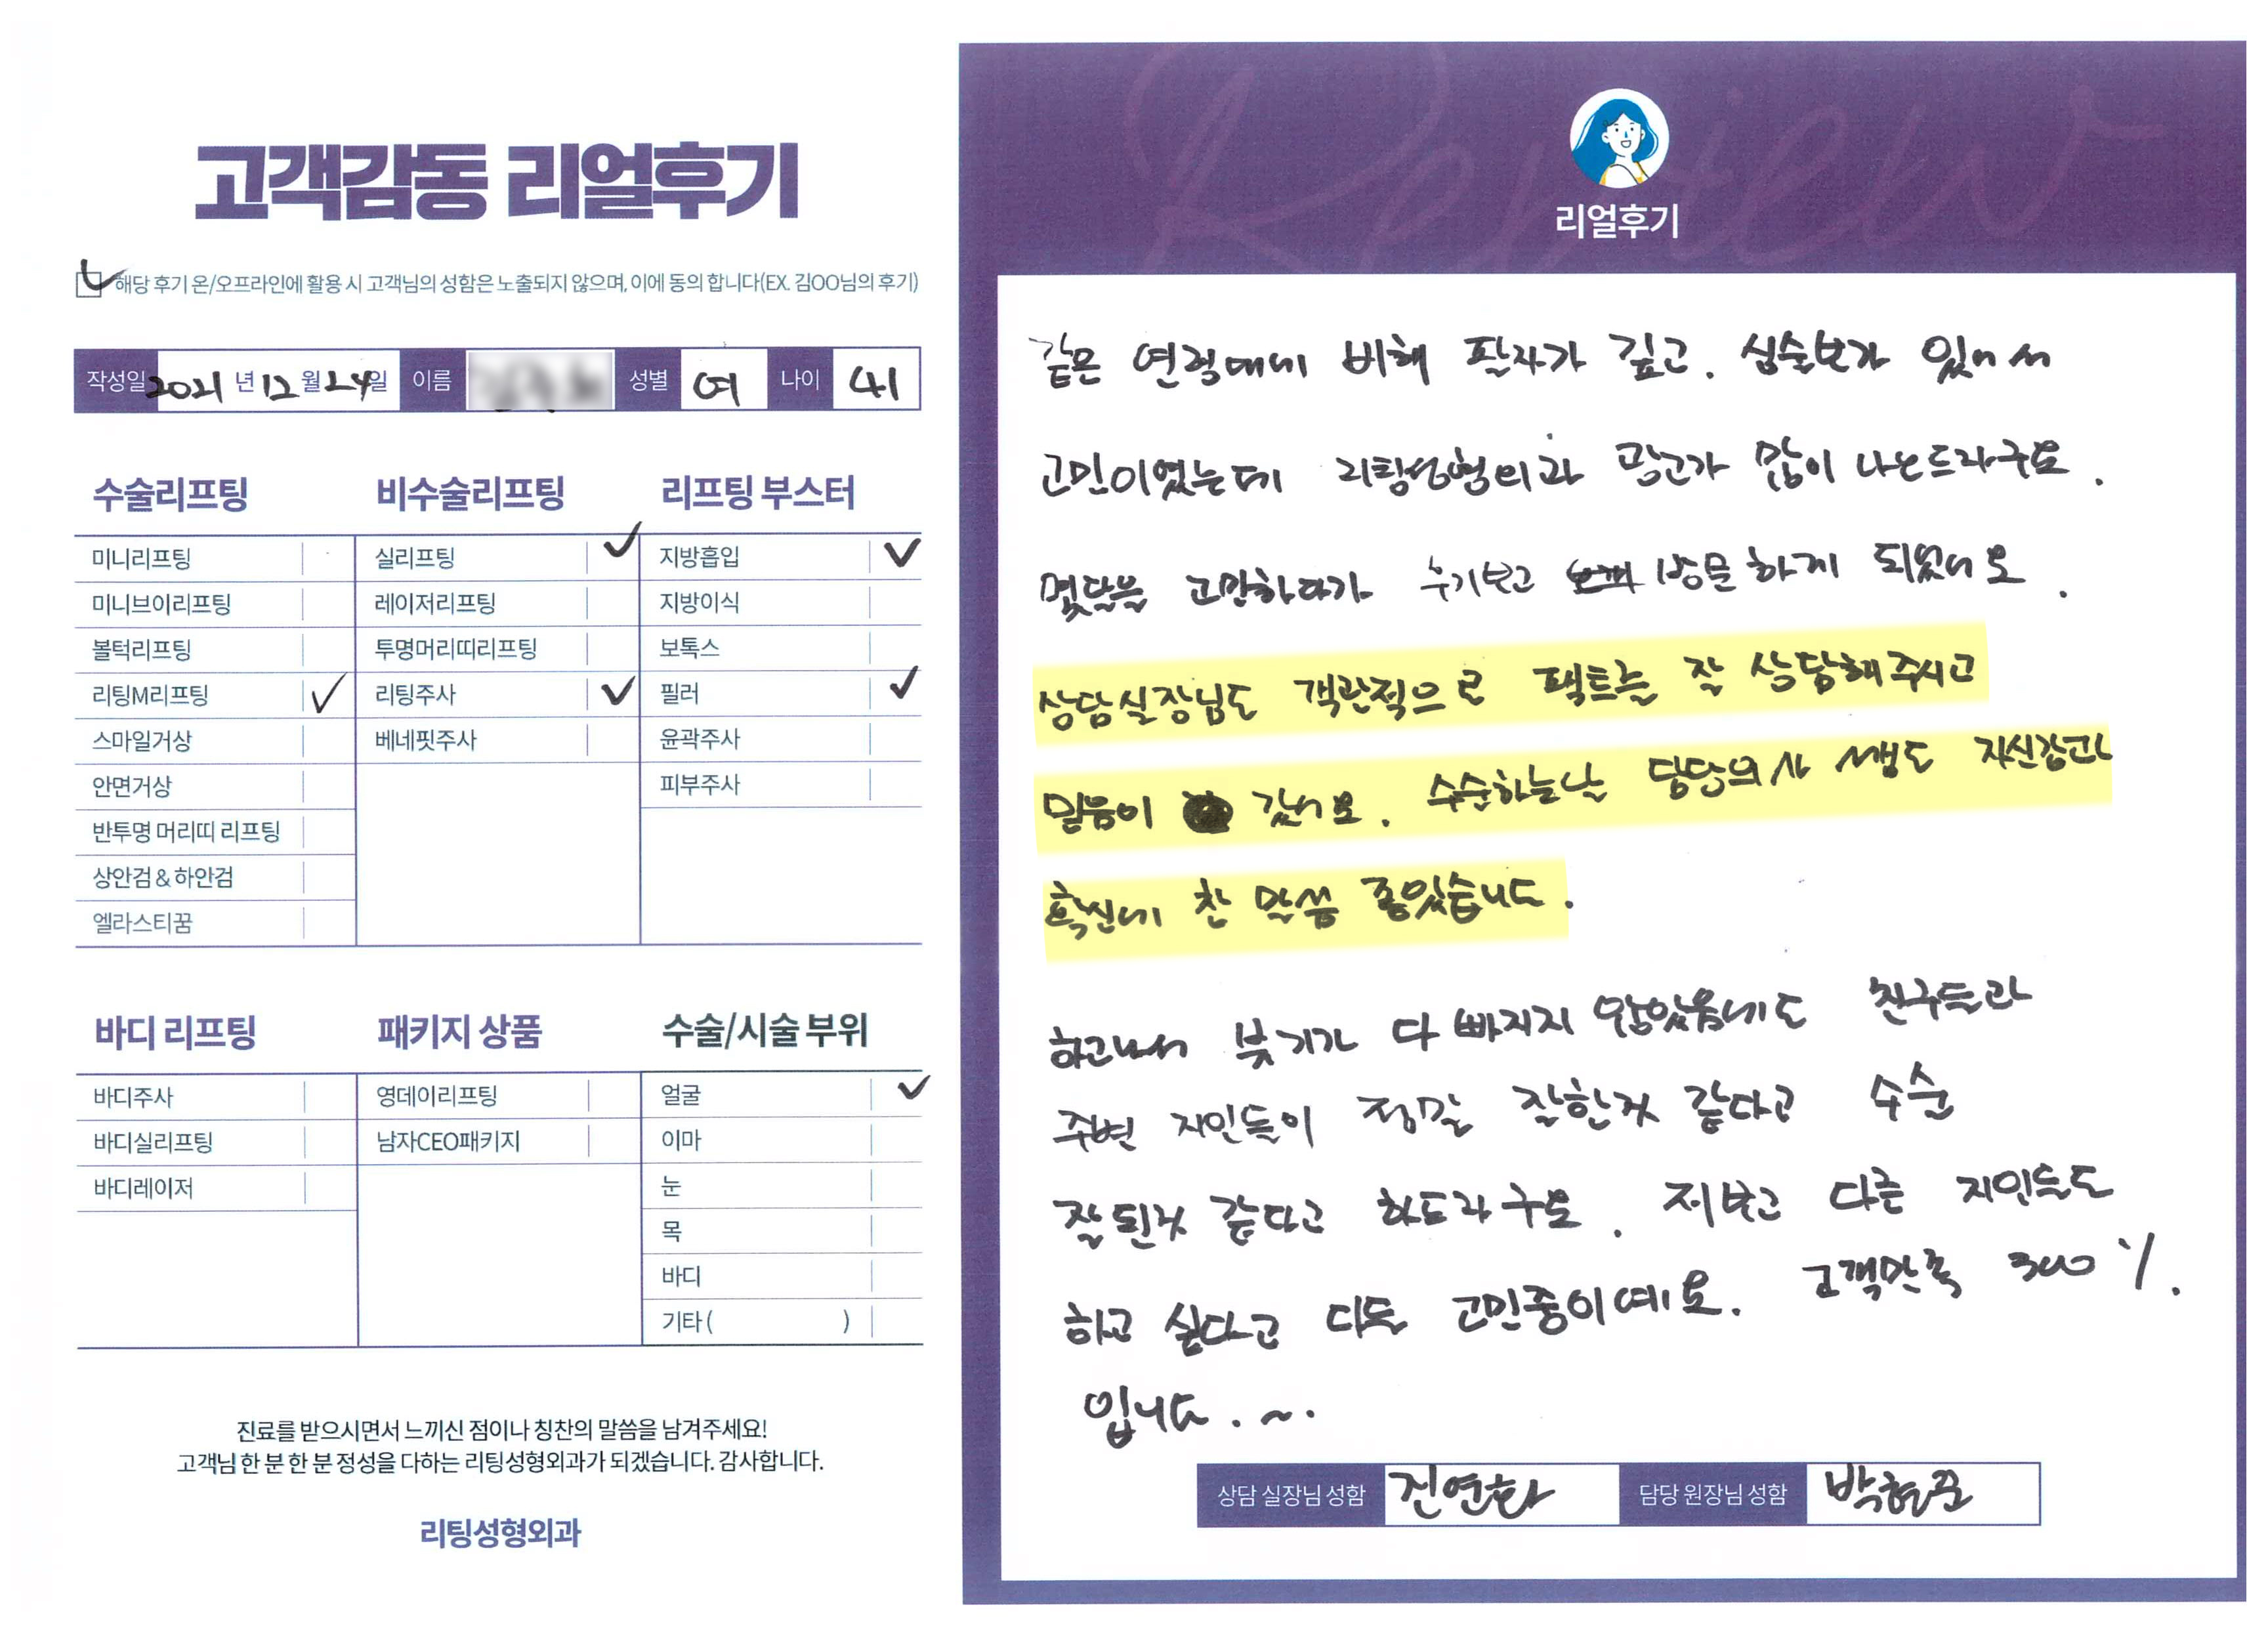 고객감동 리얼후기
해당 후기 온/오프라인에 활용 시 고객님의 성함은 노출되지 않으며, 이에 동의 합니다(EX. 김OO님의 후기)
작성일 2021 년 12 월 24일 이름 성별 여 나이 41
수술리프팅 비수술리프팅 리프팅 부스터
미니리프팅 실리프팅 ✓ 지방흡입 ✓
미니브이리프팅 레이저리프팅 지방이식
볼턱리프팅 투명머리띠리프팅 보톡스
리팅M리프팅 ✓ 리팅주사 ✓ 필러 ✓
스마일거상 베네핏주사 윤곽주사
안면거상 피부주사
반투명 머리띠 리프팅
상안검 & 하안검
엘라스티꿈
바디 리프팅 패키지 상품 수술/시술 부위
바디주사 영데이리프팅 얼굴 ✓
바디실리프팅 남자CEO패키지 이마
바디레이저 눈
목
바디
기타 ( )
진료를 받으시면서 느끼신 점이나 칭찬의 말씀을 남겨주세요!
고객님 한 분 한 분 정성을 다하는 리팅성형외과가 되겠습니다. 감사합니다.
리팅성형외과
Review
리얼후기
같은 연령대에 비해 팔자가 깊고. 심술보가 있어서
고민이였는데 리팅성형외과 광고가 많이 나온드라구요.
몇달을 고민하다가 후기보고 방문하게 되었어요.
상담실장님도 객관적으로 팩트를 잘 상담해주시고
믿음이 갔어요. 수술하는날 담당의사 쌤도 자신감과
확신에 찬 말씀 좋았습니다.
하고나서 붓기가 다 빠지지 않았음에도 친구들과
주변 지인들이 정말 잘한것 같다고 수술
잘된것 같다고 하드라구요. 저보고 다른 지인들도
하고 싶다고 다들 고민중이예요. 고객만족 300%.
입니다.~.
상담 실장님 성함 진연화 담당 원장님 성함 박현준